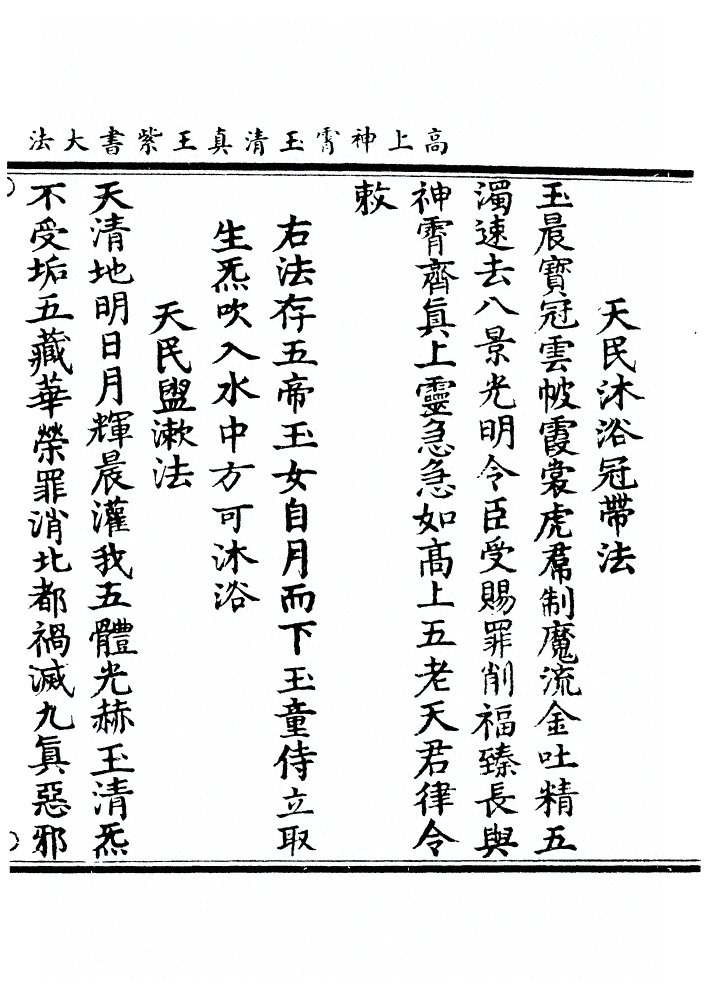 高上神霄玉清真王紫書大法
天民沐浴冠帶法
玉晨寶冠雲帔霞裳虎羣制魔流金吐精五
濁速去八景光明令臣受賜罪削福臻長與
神霄齊眞上靈急急如高上五老天君律令
敕
右法存五帝玉女自月而下玉童侍立取
生炁吹入水中方可沐浴
天民盥漱法
天清地明日月輝晨灌我五體光赫玉清炁
不受垢五藏華榮罪消北都禍滅九眞惡邪